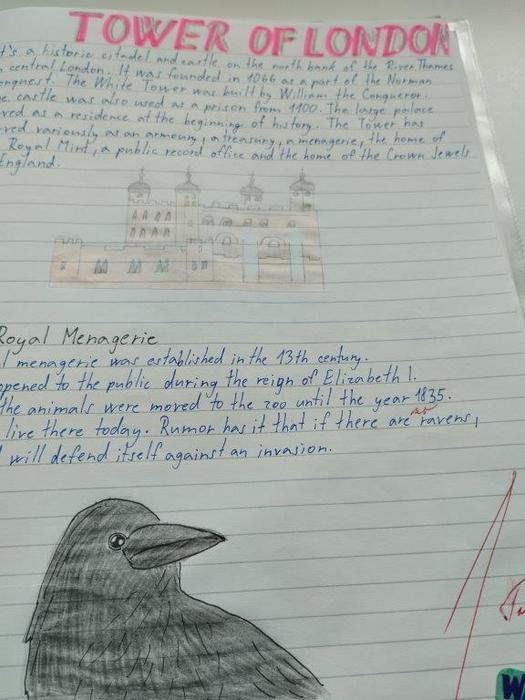 TOWER OF LONDON
t's a historic citadel and castle on the north bank of the River Thames
central London. It was founded in 1066 as a part of the Norman
onquest. The White Tower was built by William the Conqueror.
e castle was also used as a prison from 1100. The large palace
ved as a residence at the beginning of history. The Tower has
rved variously as an armoury, a treasury, a menagerie, the home of
Royal Mint, a public record office and the home of the Crown Jewels
England.
Royal Menagerie
l menagerie was established in the 13th century.
opened to the public during the reign of Elizabeth I.
the animals were moved to the zoo until the year 1835.
no
live there today. Rumor has it that if there are ravens,
will defend itself against an invasion.
W